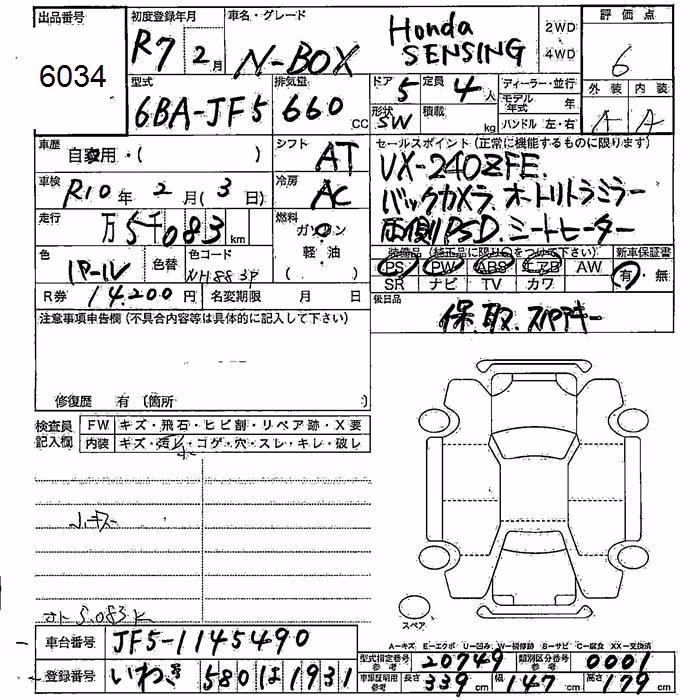 出品番号
6034
初度登録年月
R7 2月
車名・グレード
N-BOX
Honda
SENSING
2WD
4WD
評価点
6
外装 内装
A A
型式
6BA-JF5
排気量
660 CC
ドア
5
定員
4人
形状
SW
積載
kg
ディーラー・並行
モデル年式 年
ハンドル 左・右
車歴
自家用・( )
シフト
AT
セールスポイント(正常に機能するものに限ります)
VX-240ZFE.
バックカメラ. オートリトラミラー
両側PSD. シートヒーター
車検
R10年 2月(3日)
冷房
AC
走行
万5千083km
燃料
ガソリン
軽油
( )
色
パール
色替
色コード
NH883P
装備品(純正品に限り○をつけて下さい)
PS PW ABS エアB AW
SR ナビ TV カワ
新車保証書
有・無
R券 14,200円
名変期限 月 日
後日品
保.取.スペアキー
注意事項申告欄(不具合内容等は具体的に記入して下さい)
修復歴 有〔箇所 〕
検査員記入欄
FW キズ・飛石・ヒビ割・リペア跡・X要
内装 キズ・汚れ・コゲ・穴・スレ・キレ・破レ
小キズ
オト 5,083K
スペア
A=キズ E=エクボ U=凹み W=補修跡 S=サビ C=腐食 XX=交換済
車台番号
JF5-1145490
登録番号
いわき 580 は 1931
型式指定番号 参考
20749
類別区分番号 参考
0001
車庫証明用 参考
長さ 339cm 幅 147cm 高さ 179cm